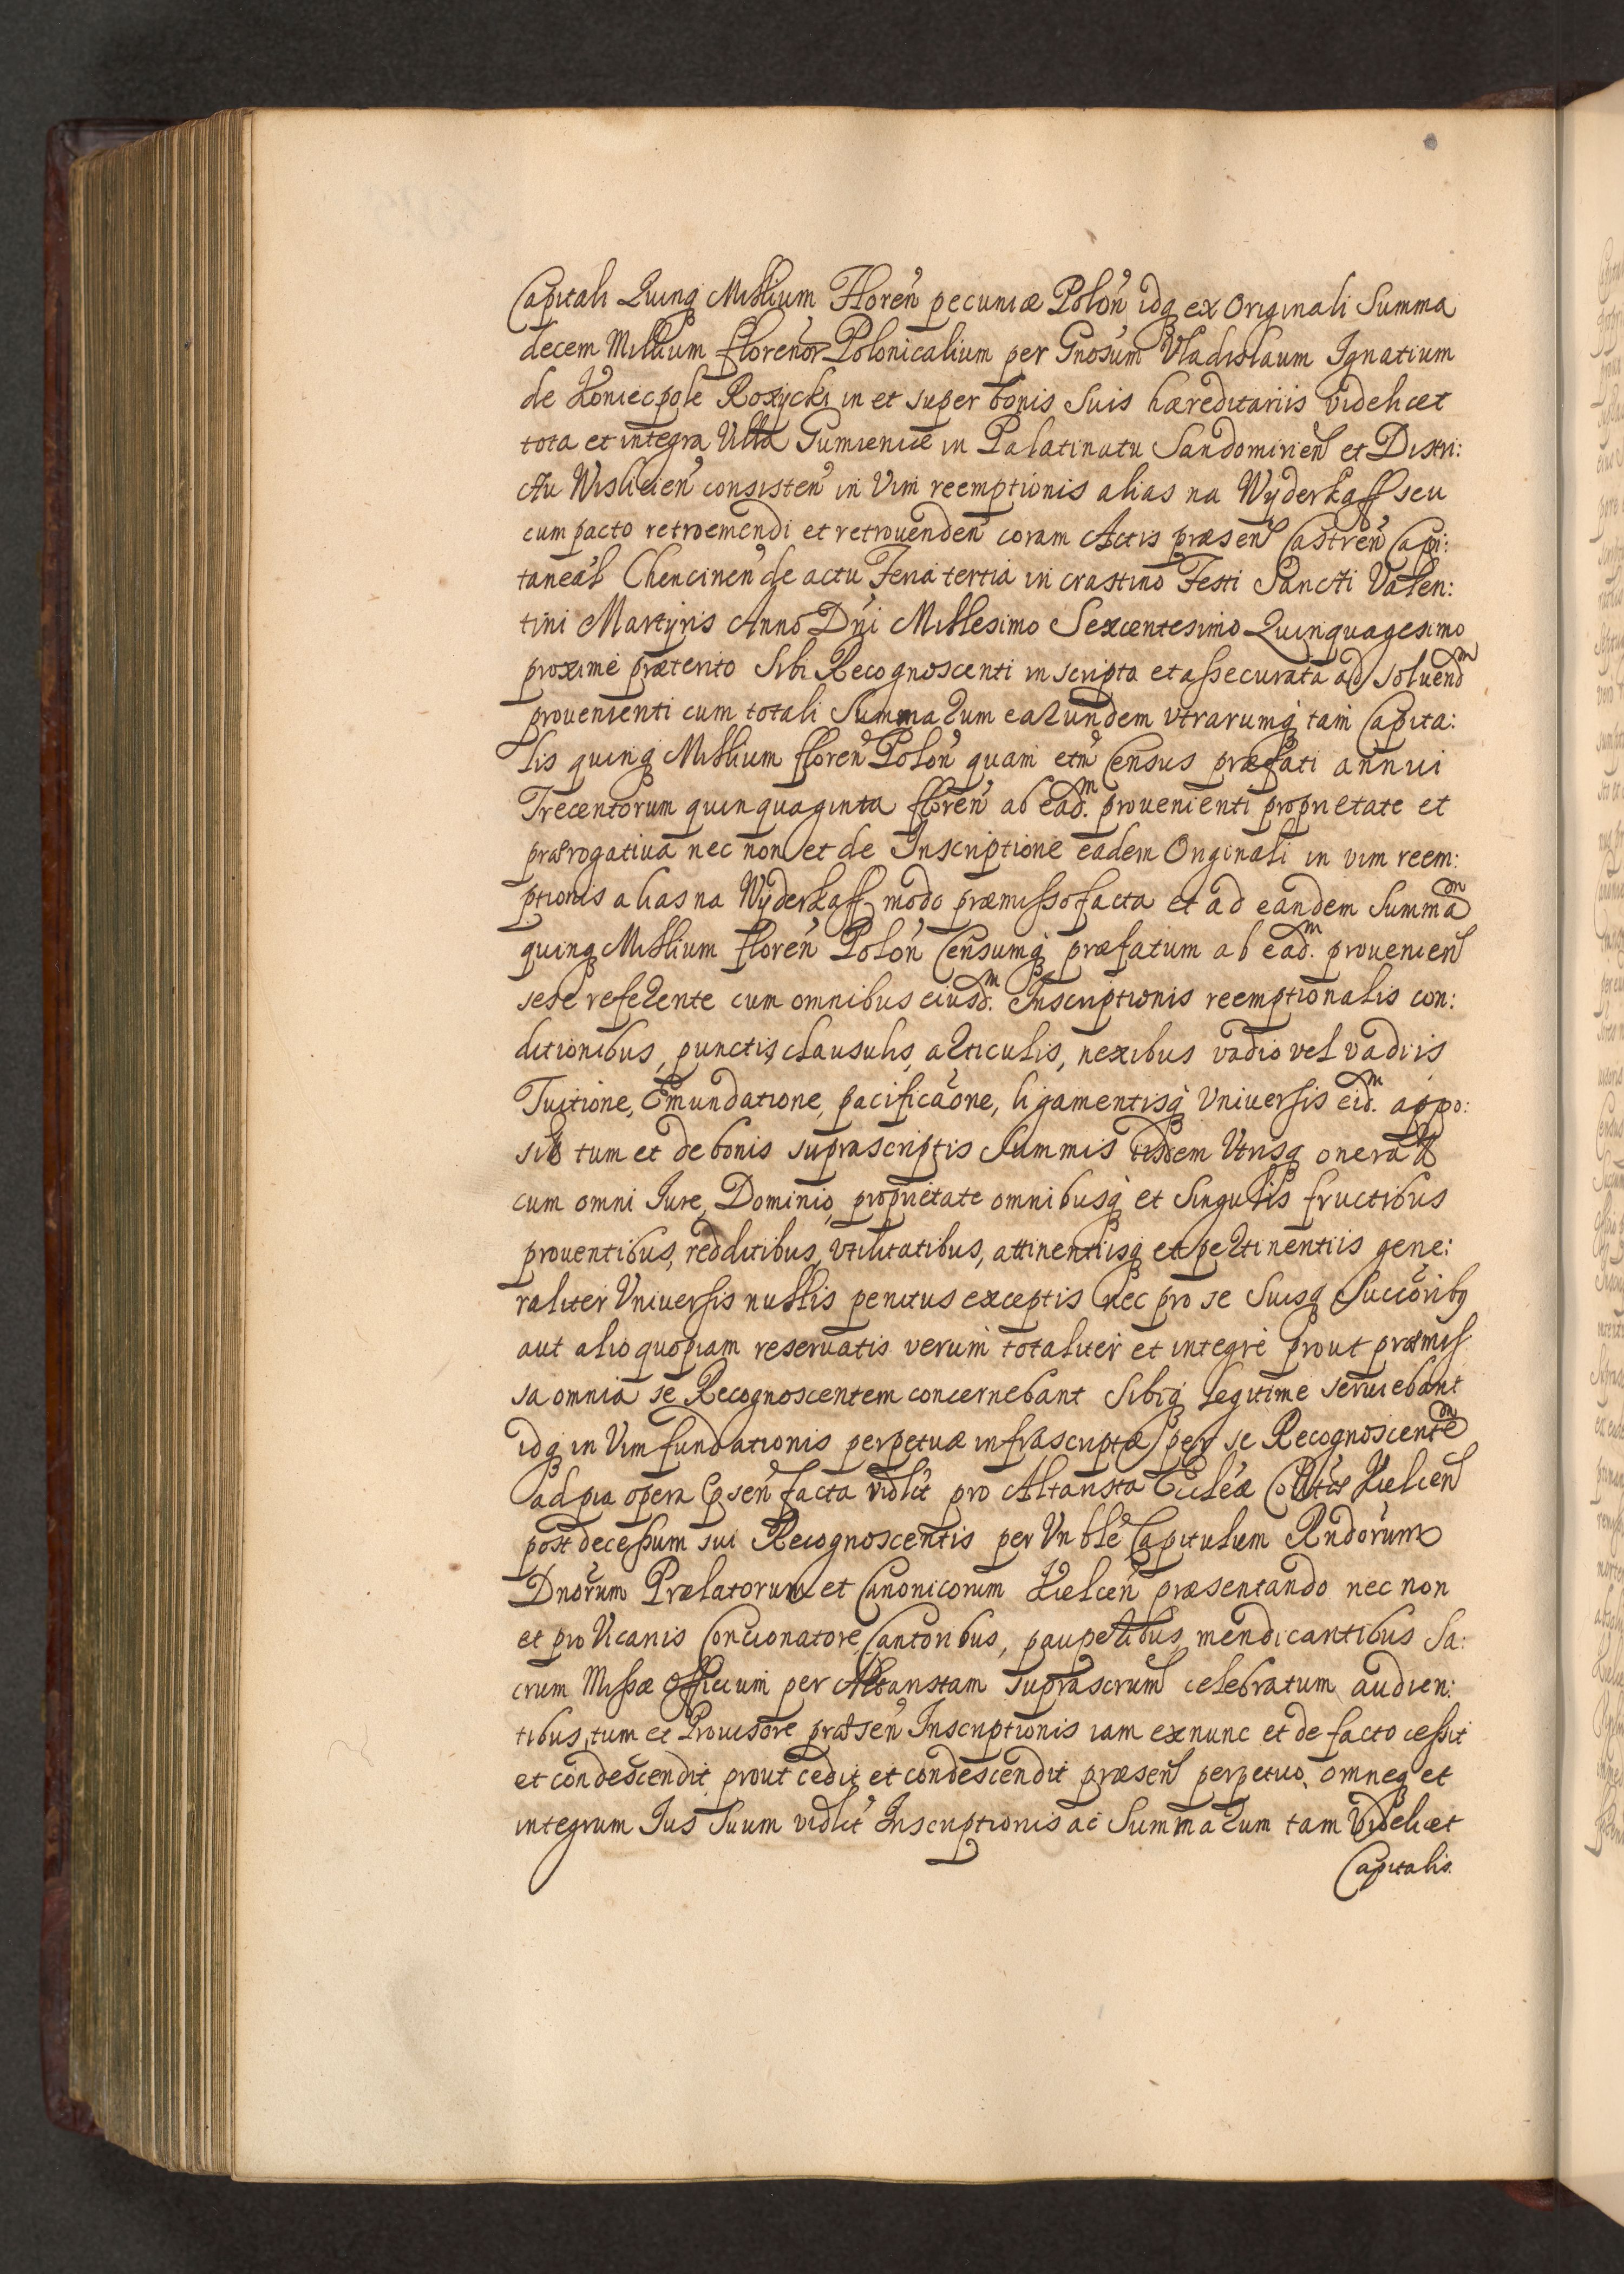 Capitali Quinq Millium Floren pecuniæ Polon idq ex Originali Summa
decem Millium florenor Polonicalium per Gnosum Vladislaum Ignatium
de Koniecpole Roxycki in et super bonis Suis hæreditariis videlicet
tota et integra Villa Gumienice in Palatinatu Sandomirien et Distri:
ctu Wislicien consisten in Vim reemptionis alias na Wyderkaff seu
cum pacto retroemendi et retrouenden coram Actis præsen Castren Capi:
taneal Chencinen de actu Feria tertia in crastino Festi Sancti Valen:
tini Martyris Anno Dni Millesimo Sexcentesimo Quinquagesimo
proxime præterito Sibi Recognoscenti inscripta et assecurata ad soluendm
prouenienti cum totali Summarum earundem vtrarumq tam Capita:
lis quinq Millium floren Polon quam etm Census præfati annui
Trecentorum quinquaginta floren ab eadm. prouenienti proprietate et
prærogatiua nec non et de Inscriptione eadem Originali in vim reem:
ptionis alias na Wyderkaff modo præmisso facta et ad eandem Summam
quinq Millium floren Polon Censumq præfatum ab eadm. prouenien
sese referente cum omnibus eiusdm. Inscriptionis reemptionalis con:
ditionibus, punctis, clausulis, articulis, nexibus vadio vel vadiis
Tuitione, Emundatione, pacificaone, ligamentisq Vniuersis eidm. appo:
sit tum et de bonis suprascriptis Summis iisdem Vtrisq onerat
cum omni Iure, Dominio, proprietate omnibusq et Singulis fructibus
prouentibus, redditibus, vtilitatibus, attinentiisq et pertinentiis gene:
raliter Vniuersis nullis penitus exceptis nec pro se Suisq Succoribq
aut alio quopiam reseruatis verum totaliter et integre prout præmis
sa omnia se Recognoscentem concernebant Sibiq legitime seruiebant
idq in Vim fundationis perpetuæ infrascriptæ per se Recognoscentem
ad pia opera psen facta vidlit pro Altarista Eccleæ Colltæ Kielcen
post decessum sui Recognoscentis per Vnble Capitulum Rndorum
Dnorum Prælatorum et Canonicorum Kielcen præsentando nec non
et pro Vicariis Concionatore, Cantoribus, pauperibus mendicantibus Sa:
crum Missæ Officium per Altaristam suprascrum celebratum audien:
tibus, tum et Prouisore præsen Inscriptionis iam exnunc et de facto cessit
et condescendit prout cedit et condescendit præsen perpetuo, omneq et
integrum Ius Suum vidlit Inscriptionis ac Summarum tam Videlicet
Capitalis.